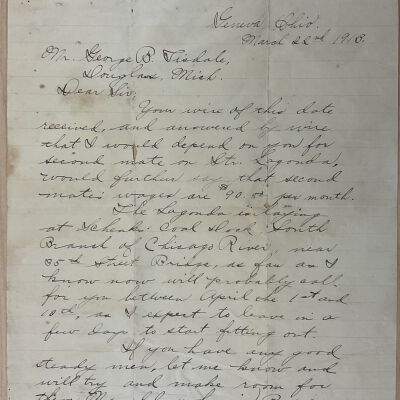 Geneva, Ohio.
March 22nd 1913.
Mr. George B. Tisdale,
Douglas, Mich.
Dear Sir;
Your wire of this date
received, and answered by wire
that I would depend on you for
second mate on Str. Lagonda,
would further say that second
mate's wages are $90.00 per month.
The Lagonda is laying
at Schenks Coal Dock South
Branch of Chicago River, near
35th Street Bridge, as far as I
know now will probably call
for you between April the 1st and
10th, as I expect to leave in a
few days to start fitting out.
If you have any good
steady men, let me know and
will try and make room for